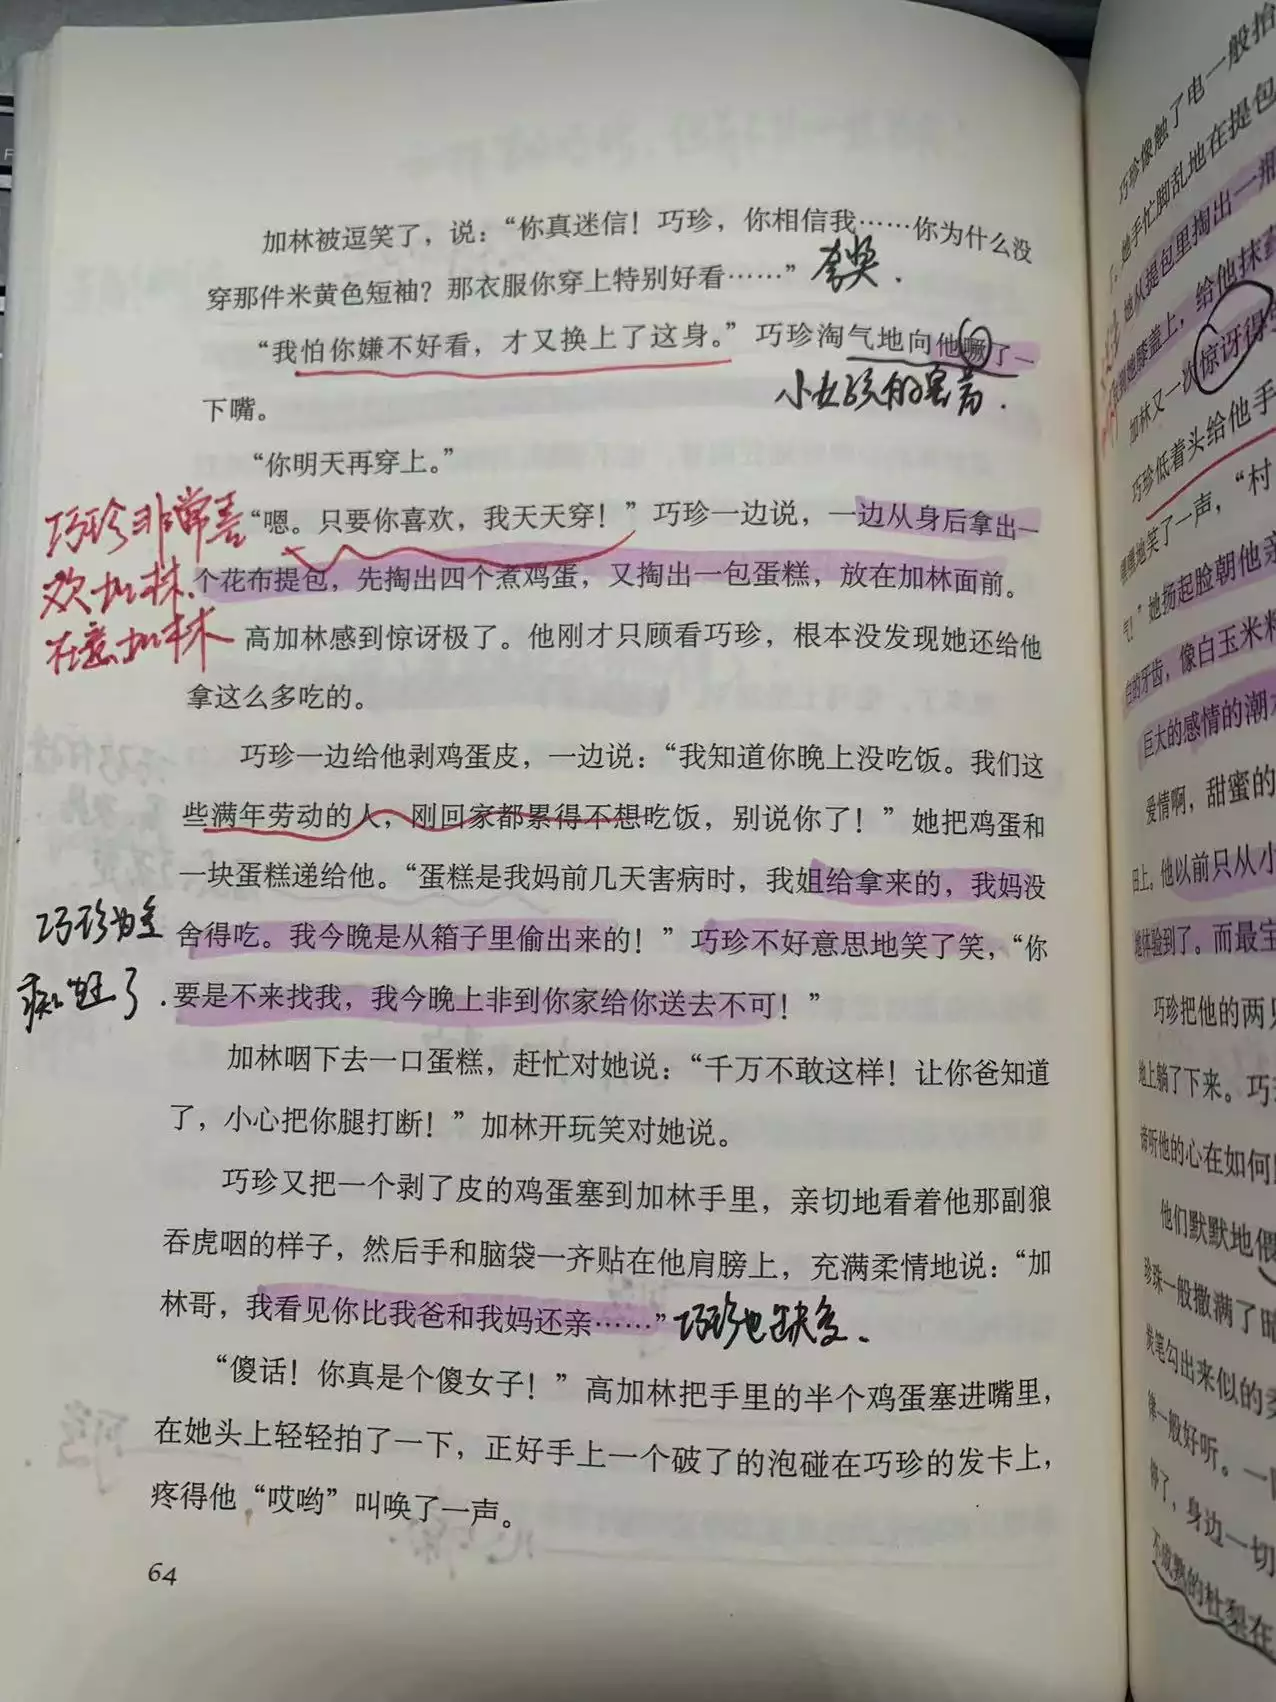 加林被逗笑了，说：“你真迷信！巧珍，你相信我……你为什么没
穿那件米黄色短袖？那衣服你穿上特别好看……”
夸奖.
“我怕你嫌不好看，才又换上了这身。”巧珍淘气地向他噘了一
小女孩的害羞.
下嘴。
“你明天再穿上。”
巧珍非常喜
欢加林、
在意加林
“嗯。只要你喜欢，我天天穿！”巧珍一边说，一边从身后拿出一
个花布提包，先掏出四个煮鸡蛋，又掏出一包蛋糕，放在加林面前。
高加林感到惊讶极了。他刚才只顾看巧珍，根本没发现她还给他
拿这么多吃的。
巧珍一边给他剥鸡蛋皮，一边说：“我知道你晚上没吃饭。我们这
些满年劳动的人，刚回家都累得不想吃饭，别说你了！”她把鸡蛋和
一块蛋糕递给他。“蛋糕是我妈前几天害病时，我姐给拿来的，我妈没
舍得吃。我今晚是从箱子里偷出来的！”巧珍不好意思地笑了笑，“你
要是不来找我，我今晚上非到你家给你送去不可！”
巧珍为爱
痴狂了.
加林咽下去一口蛋糕，赶忙对她说：“千万不敢这样！让你爸知道
了，小心把你腿打断！”加林开玩笑对她说。
巧珍又把一个剥了皮的鸡蛋塞到加林手里，亲切地看着他那副狼
吞虎咽的样子，然后手和脑袋一齐贴在他肩膀上，充满柔情地说：“加
林哥，我看见你比我爸和我妈还亲……”
巧珍也缺爱.
“傻话！你真是个傻女子！”高加林把手里的半个鸡蛋塞进嘴里，
在她头上轻轻拍了一下，正好手上一个破了的泡碰在巧珍的发卡上，
疼得他“哎哟”叫唤了一声。
64
巧珍像触了电一般抬
她手忙脚乱地在提包
她从提包里掏出一瓶
膝盖上，给他抹
加林又一次惊讶得
巧珍低着头给他手
嘿嘿地笑了一声，“村
气！”她扬起脸朝他亲
白的牙齿，像白玉米粒
巨大的感情的潮
爱情啊，甜蜜的
他以前只从小
地体验到了。而最宝
巧珍把他的两只
地上躺了下来。巧
谛听他的心在如何
他们默默地偎
珍珠一般撒满了暗
炭笔勾出来似的柔
律一般好听。一
停了，身边一切
不成熟的杜梨在